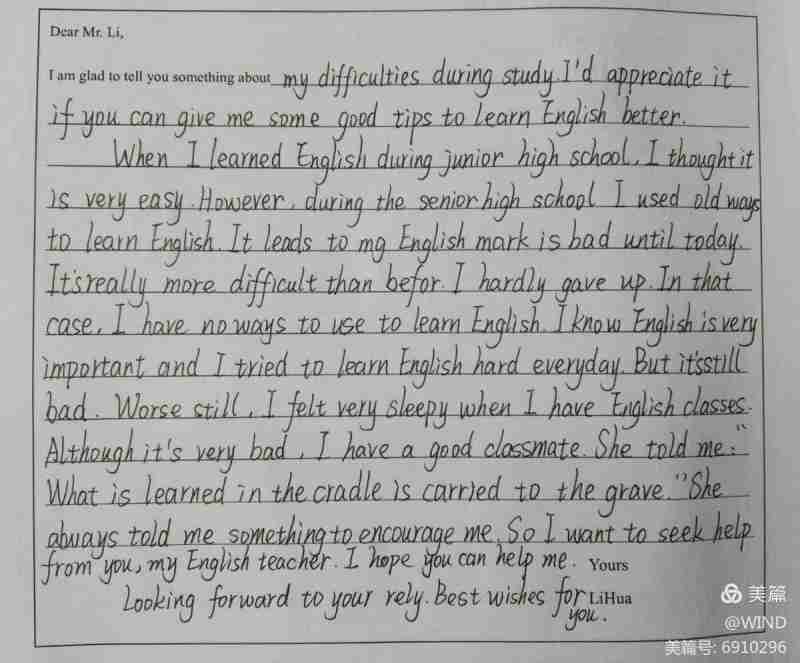 Dear Mr. Li,
I am glad to tell you something about my difficulties during study. I'd appreciate it
if you can give me some good tips to learn English better.
When I learned English during junior high school, I thought it
is very easy. However, during the senior high school I used old ways
to learn English. It leads to my English mark is bad until today.
It's really more difficult than befor. I hardly gave up. In that
case, I have no ways to use to learn English. I know English is very
important and I tried to learn English hard everyday. But it's still
bad. Worse still, I felt very sleepy when I have English classes.
Although it's very bad, I have a good classmate. She told me: "
What is learned in the cradle is carried to the grave." She
always told me something to encourage me. So I want to seek help
from you, my English teacher. I hope you can help me. Yours
Looking forward to your rely. Best wishes for LiHua
you.
美篇
@WIND
美篇号: 6910296